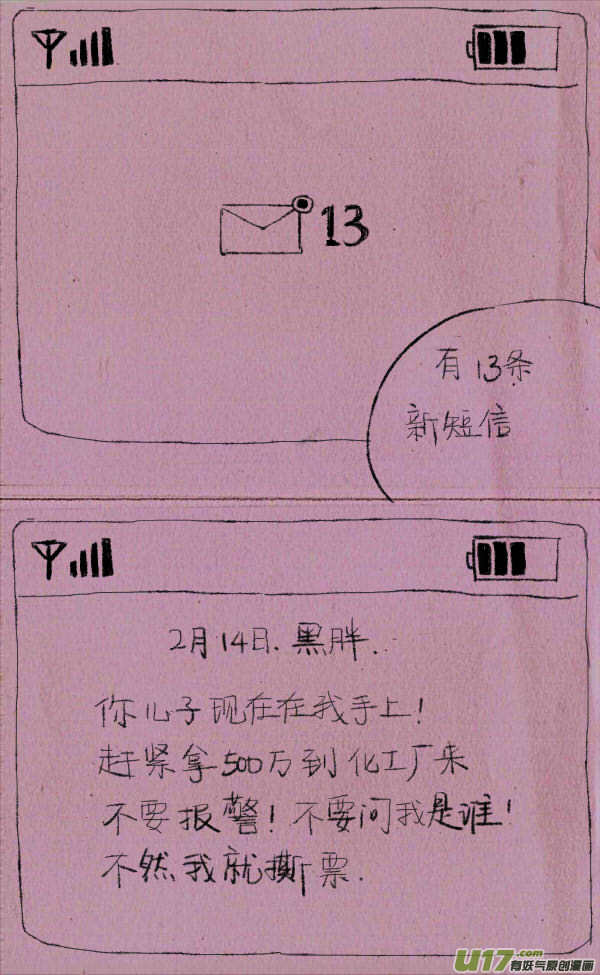 13
有13条
新短信
2月14日.黑胖..
你儿子现在在我手上!
赶紧拿500万到化工厂来
不要报警!不要问我是谁!
不然我就撕票.
U17.com
有妖气原创漫画